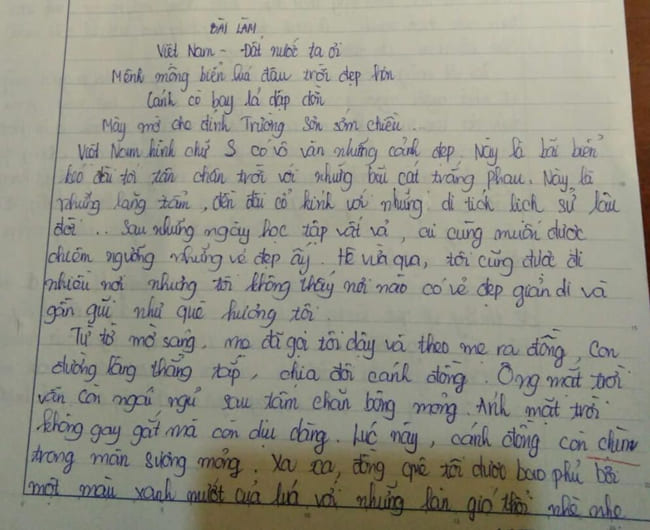 BÀI LÀM
Việt Nam - Đất nước ta ơi
Mênh mông biển lúa đâu trời đẹp hơn
Cánh cò bay lả dập dờn
Mây mờ che đỉnh Trường Sơn sớm chiều.
Việt Nam hình chữ S có vô vàn những cảnh đẹp. Này là bãi biển
kéo dài tới tận chân trời với những bãi cát trắng phau. Này là
những lăng tẩm, đền đài cổ kính với những di tích lịch sử lâu
đời... Sau những ngày học tập vất vả, ai cũng muốn được
chiêm ngưỡng những vẻ đẹp ấy. Hè vừa qua, tôi cũng được đi
nhiều nơi nhưng tôi không thấy nơi nào có vẻ đẹp giản dị và
gần gũi như quê hương tôi.
Từ tờ mờ sáng, mẹ đã gọi tôi dậy và theo mẹ ra đồng. Con
đường làng thẳng tắp, chia đôi cánh đồng. Ông mặt trời
vẫn còn ngái ngủ sau tấm chăn bông mỏng. Ánh mặt trời
không gay gắt mà còn dịu dàng. Lúc này, cánh đồng còn chìm
trong màn sương mỏng. Xa xa, đồng quê tôi được bao phủ bởi
một màu xanh mướt của lúa với những làn gió thổi nhè nhẹ